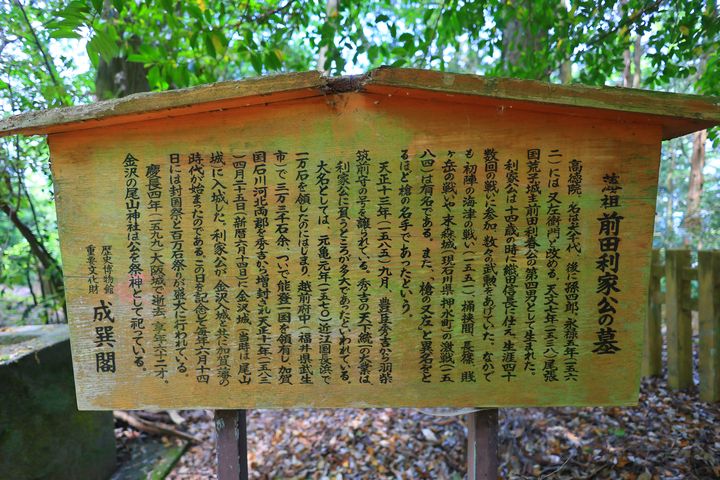 藩祖 前田利家公の墓
高徳院、名は犬千代、後に孫四郎、永禄五年(一五六
二)には又左衛門と改める。天文七年(一五三八)尾張
国荒子城主前田利春公の第四男として生まれた。
利家公は十四歳の時に織田信長に仕え、生涯四十
数回の戦いに参加、数々の武勲をあげていた。なかで
も初陣の海津の戦い(一五五一)桶狭間、長篠、賤
ヶ岳の戦いや、末森城(現石川県押水町)の激戦(一五
八四)は有名である。また、「槍の又左」と異名をと
るほど槍の名手であったという。
天正十三年(一五八五)九月、豊臣秀吉から羽柴
筑前守の号を譲られている。秀吉の天下統一の大業は
利家公に負うところが多大であったといわれている。
大名としては、元亀元年(一五七〇)近江国長浜で
一万石を領したのにはじまり、越前府中(福井県武生
市)で三万三千石余、ついで能登一国を領有し、加賀
国石川河北両郡を秀吉から増封され天正十一年(一五八三
)四月二十五日(新暦六月十四日)に金沢城(当時は尾山
城)に入城した。利家公が金沢入城と共に加賀藩の
時代が始まったのである。この日を記念して毎年六月十四
日には封国祭りと百万石祭りが盛大に行われている。
慶長四年(一五九九)大阪城で逝去、享年六十二才。
金沢の尾山神社は公を祭神として祀っている。
歴史博物館
重要文化財 成巽閣